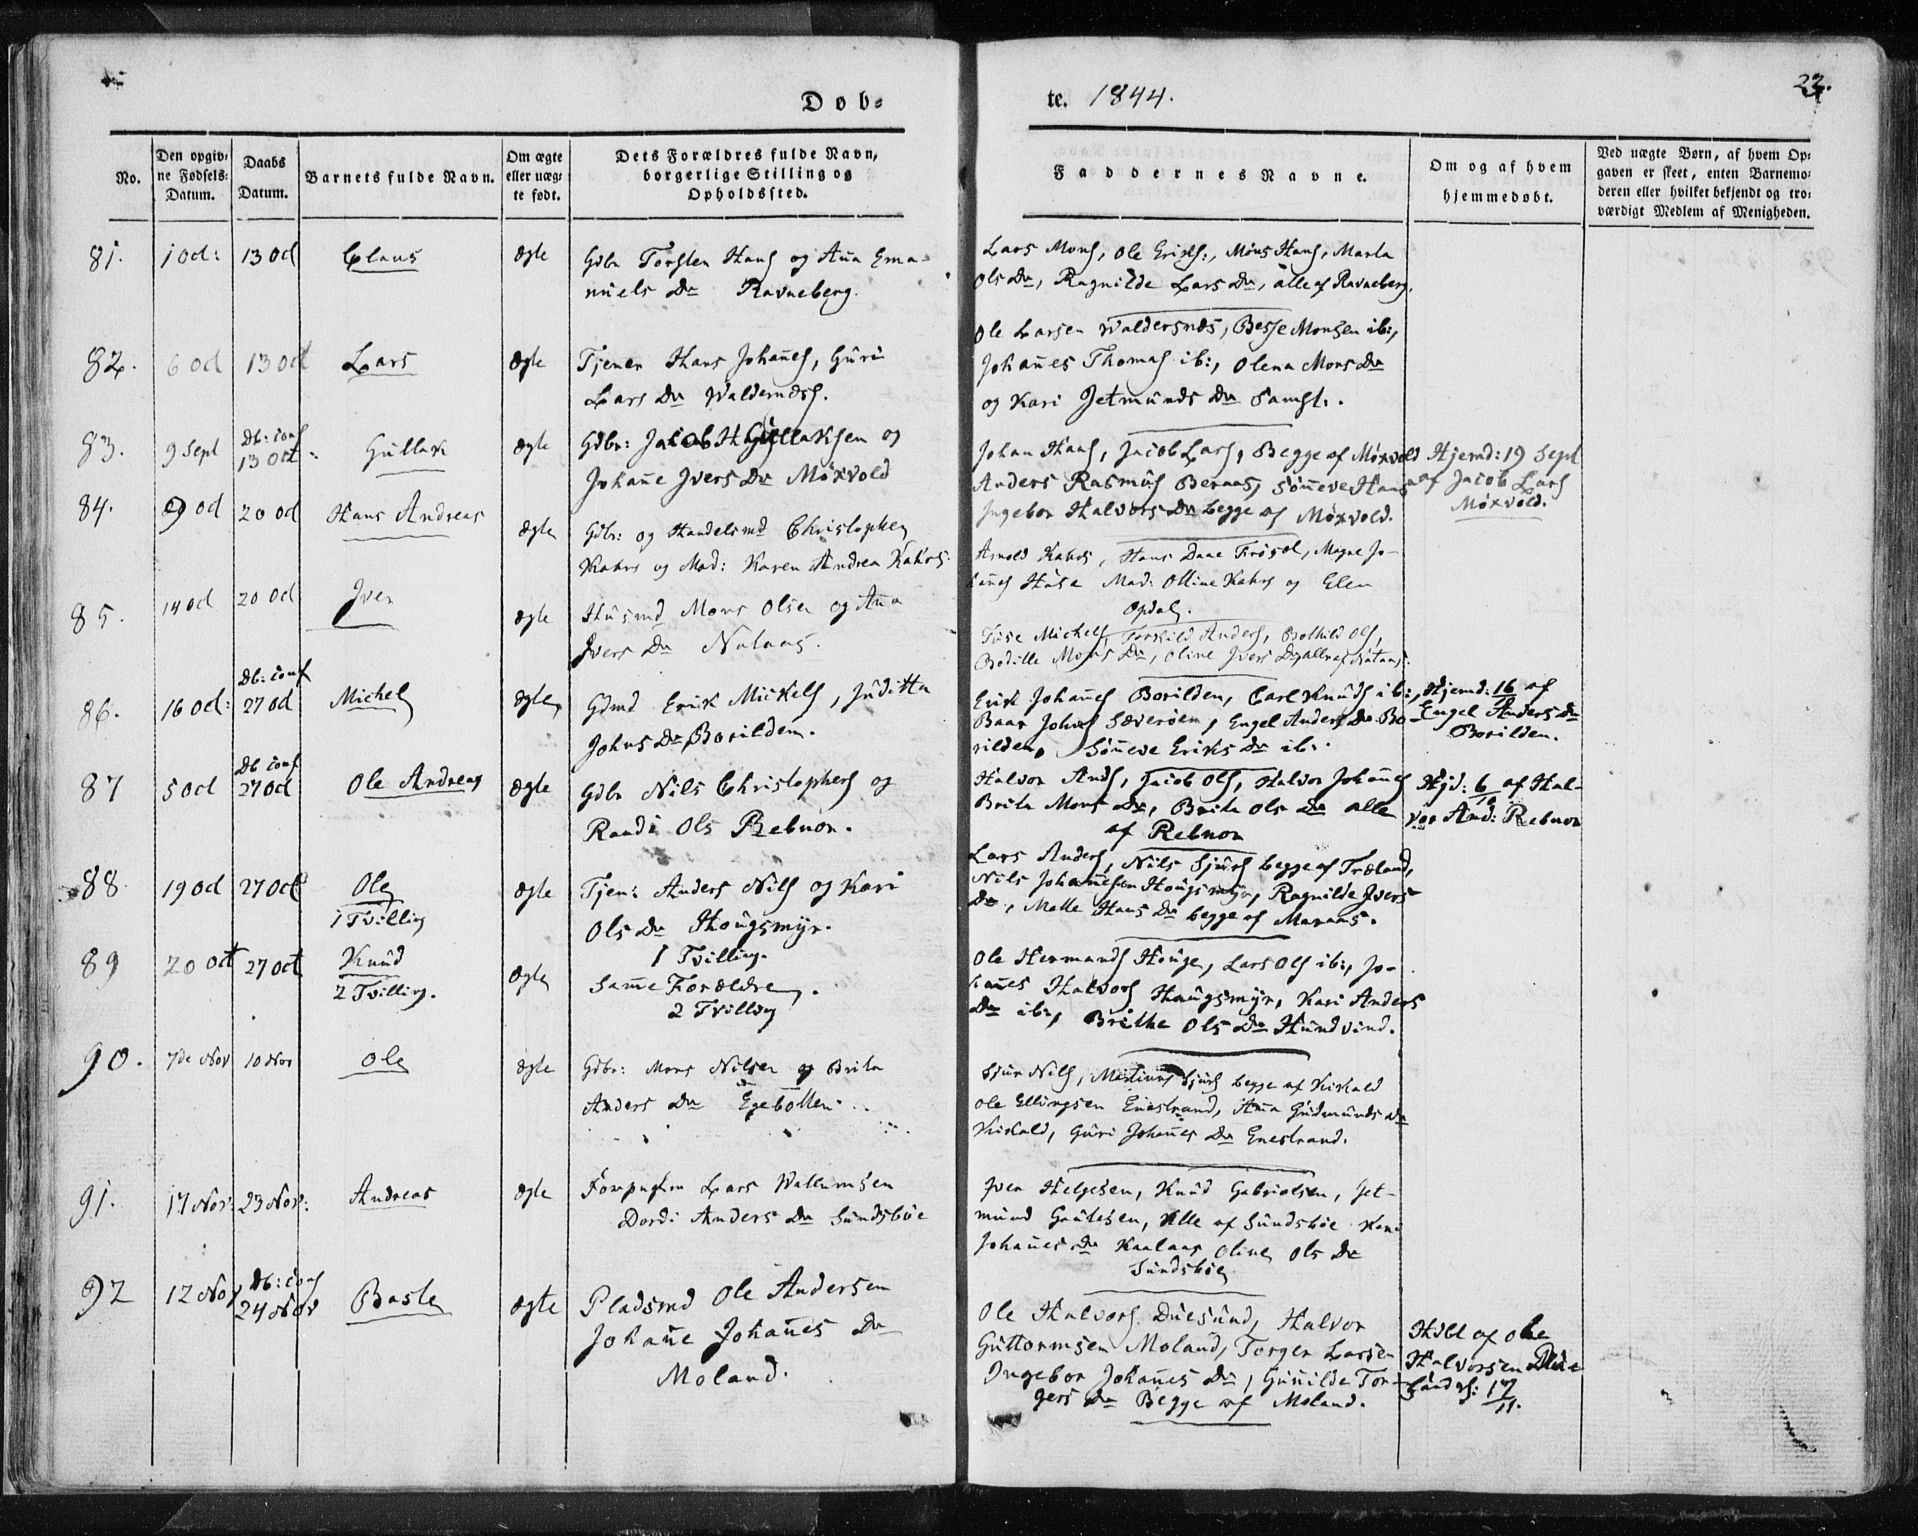 Døb-
te. 1844.
23.
No.
Den opgiv-
ne Fødsels-
Datum.
Daabs
Datum.
Barnets fulde Navn.
Om ægte
eller uæg-
te født.
Dets Forældres fulde Navn,
borgerlige Stilling og
Opholdssted.
Faddernes Navne.
Om og af hvem
hjemmedøbt.
Ved uægte Børn, af hvem Op-
gaven er skeet, enten Barnemo-
deren eller hvilket bekjendt og tro-
værdigt Medlem af Menigheden.
81. 1 Oct: 13 Oct Claus ægte
Gdbr Torsten Hans og Aña Ema-
nuels Dr Ravneberg.
Lars Mons, Ole Eriks:, Mons Hans, Marta
Ols Dr, Ragnilde Lars Dr, alle af Ravneberg.
82. 6 Oct 13 Oct Lars ægte
Tjener Hans Johañes, Guri
Lars Dr Waldernæs.
Ole Larsen Waldersnæs, Besse Monsen ib:,
Johañes Thomas ib:, Olena Mons Dr
og Kari Jetmunds Dr Samst:.
83. 9 Sept Db: conf 13 Oct Gullak ægte
Gdbr: Jacob Gullaksen og
Johañe Ivers Dr Møxvold
Johan Hans, Jacob Lars, Begge af Møxvold
Anders Rasmus Beraas, Søñeve Hans
Ingebor Halvors Dr begge af Møxvold.
Hjemd: 19 Sept
af Jacob Lars
Møxvold.
84. 9 Oct 20 Oct Hans Andreas ægte
Gdbr: og Handelsmd Christopher
Kahrs og Mad: Karen Andrea Kahrs.
Arnold Kahrs, Hans Daae Frøsøl, Magne Jo-
hañes Huse Mad: Olline Kahrs og Elen
Opdal.
85. 14 Oct 20 Oct Iver ægte
Husmd Mons Olsen og Aña
Ivers Dr Nataas.
Tøse Michels, Torkild Anders, Bothild Ols,
Bodille Mons Dr, Oline Ivers Dr, alle af Nataas.
86. 16 Oct: Db: conf 27 Oct Michel ægte
Gdmd Erik Mickels, Juditta
Johns Dr Borilden.
Erik Johañes Borilden, Carl Knuds ib:,
Baar Johns Sæverøen, Engel Anders Dr Bo-
rilden, Søñeve Eriks Dr ib:.
Hjemd: 16 af
Engel Anders Dr
Borilden.
87 5 Oct Db conf 27 Oct Ole Andreas ægte
Gdbr Nils Christophers og
Randi Ols Rebnor.
Halvor Ands, Jacob Ols, Halvor Johañes
Brita Mons Dr, Brita Ols Dr alle
af Rebnor
Hjd: 6/10 af Hal-
vor And: Rebnor
88. 19 Oct 27 Oct Ole
1 Tvilling ægte
Tjen: Anders Nils og Kari
Ols Dr Hougsmyr.
1 Tvilling.
Lars Anders, Nils Sjurs begge af Træland,
Nils Johañesen Hougsmyr, Ragnilde Ivers
Dr, Malle Hans Dr begge af Maraas.
89 20 Oct 27 Oct Knud
2 Tvilling. ægte
Sam̃e Forældre.
2 Tvilling
Ole Hermands Houge, Lars Ols ib:, Jo-
hañes Halvors Hougsmyr, Kari Anders
Dr ib:, Brithe Ols Dr Hundvind.
90. 7de Nov 10 Nov Ole ægte
Gdbr: Mons Nilsen og Brita
Anders Dr Egebotten.
Sjur Nils, Martinus Sjurs begge af Kiskald
Ole Ellingsen Enestrand, Aña Gudmunds Dr
Kiskald, Guri Johañes Dr Enestrand.
91. 17 Nov: 23 Nov: Andreas ægte
Lars Wallumsen
Dordi Anders Dr Sundsbøe
Iver Helgesen, Knud Gabrielsen, Jet-
mund Gautesen, Alle af Sundsbøe Kari
Johañes Dr Kaalaas Oline Ols Dr
Sundsbøe
92 12 Nov Db: conf 24 Nov Baste ægte
Pladsmd Ole Andersen
Johañe Johañes Dr
Moland.
Ole Halvors. Duesund, Halvor
Guttormsen Moland, Torger Larsen
Ingebor Johañes Dr, Guñilde Tor-
gers Dr Begge af Moland.
Hdbt af Ole
Halvorsen Due
sund d: 17/11.